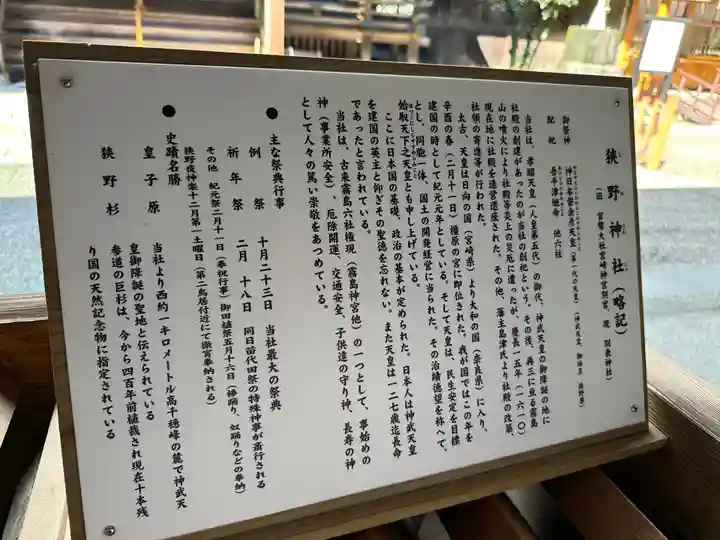 狭野神社（略記）
（旧 官幣大社宮崎神宮別宮、現 別表神社）
御祭神 神日本磐余彦天皇（第一代の天皇）（神武天皇、御幼名 狭野尊）
配祀 吾平津姫命 他六柱
当社は、孝昭天皇（人皇第五代）の御代、神武天皇の御降誕の地に
社殿の創建があったのが当社の創祀という。その後、再三に亘る霧島
山の噴火により社殿等炎上の災厄に遭ったが、慶長一五年（一六一〇）
現在地に社殿を造営遷座された。その他、藩主島津氏より社殿の改築、
社領の寄進等が行われた。
太古、天皇は日向の国（宮崎県）より大和の国（奈良県）に入り、
辛酉の春（二月十一日）橿原の宮に即位された。我が国ではこの年を
建国の時として紀元元年としている。そして天皇は、民生安定を目標
とし、同胞一体、国土の開発経営に当られた。その治績徳望を称へて、
始馭天下之天皇とも申し上げている。
ここに日本国の基礎、政治の基本が定められた。日本人は神武天皇
を建国の英主と仰ぎその聖徳を忘れない。また天皇は一二七歳迄長命
であったと言われている。
当社は、古来霧島六社権現（霧島神宮他）の一つとして、事始めの
神（事業所安全）、厄除開運、交通安全、子供達の守り神、長寿の神
として人々の篤い崇敬をあつめている。
● 主な祭典行事
例祭 十月二十三日 当社最大の祭典
祈年祭 二月十八日 同日苗代田祭の特殊神事が斎行される
その他 紀元祭二月十一日（奉祝行事）御田植祭五月十六日（棒踊り、奴踊りなどの奉納）
狭野夜神楽十二月第一土曜日（第二鳥居付近にて徹宵奉納される）
● 史蹟名勝
皇子原 当社より西約一キロメートル高千穂峰の麓で神武天
皇御降誕の聖地と伝えられている
狭野杉 参道の巨杉は、今から四百年前植栽され現在十本残
り国の天然記念物に指定されている